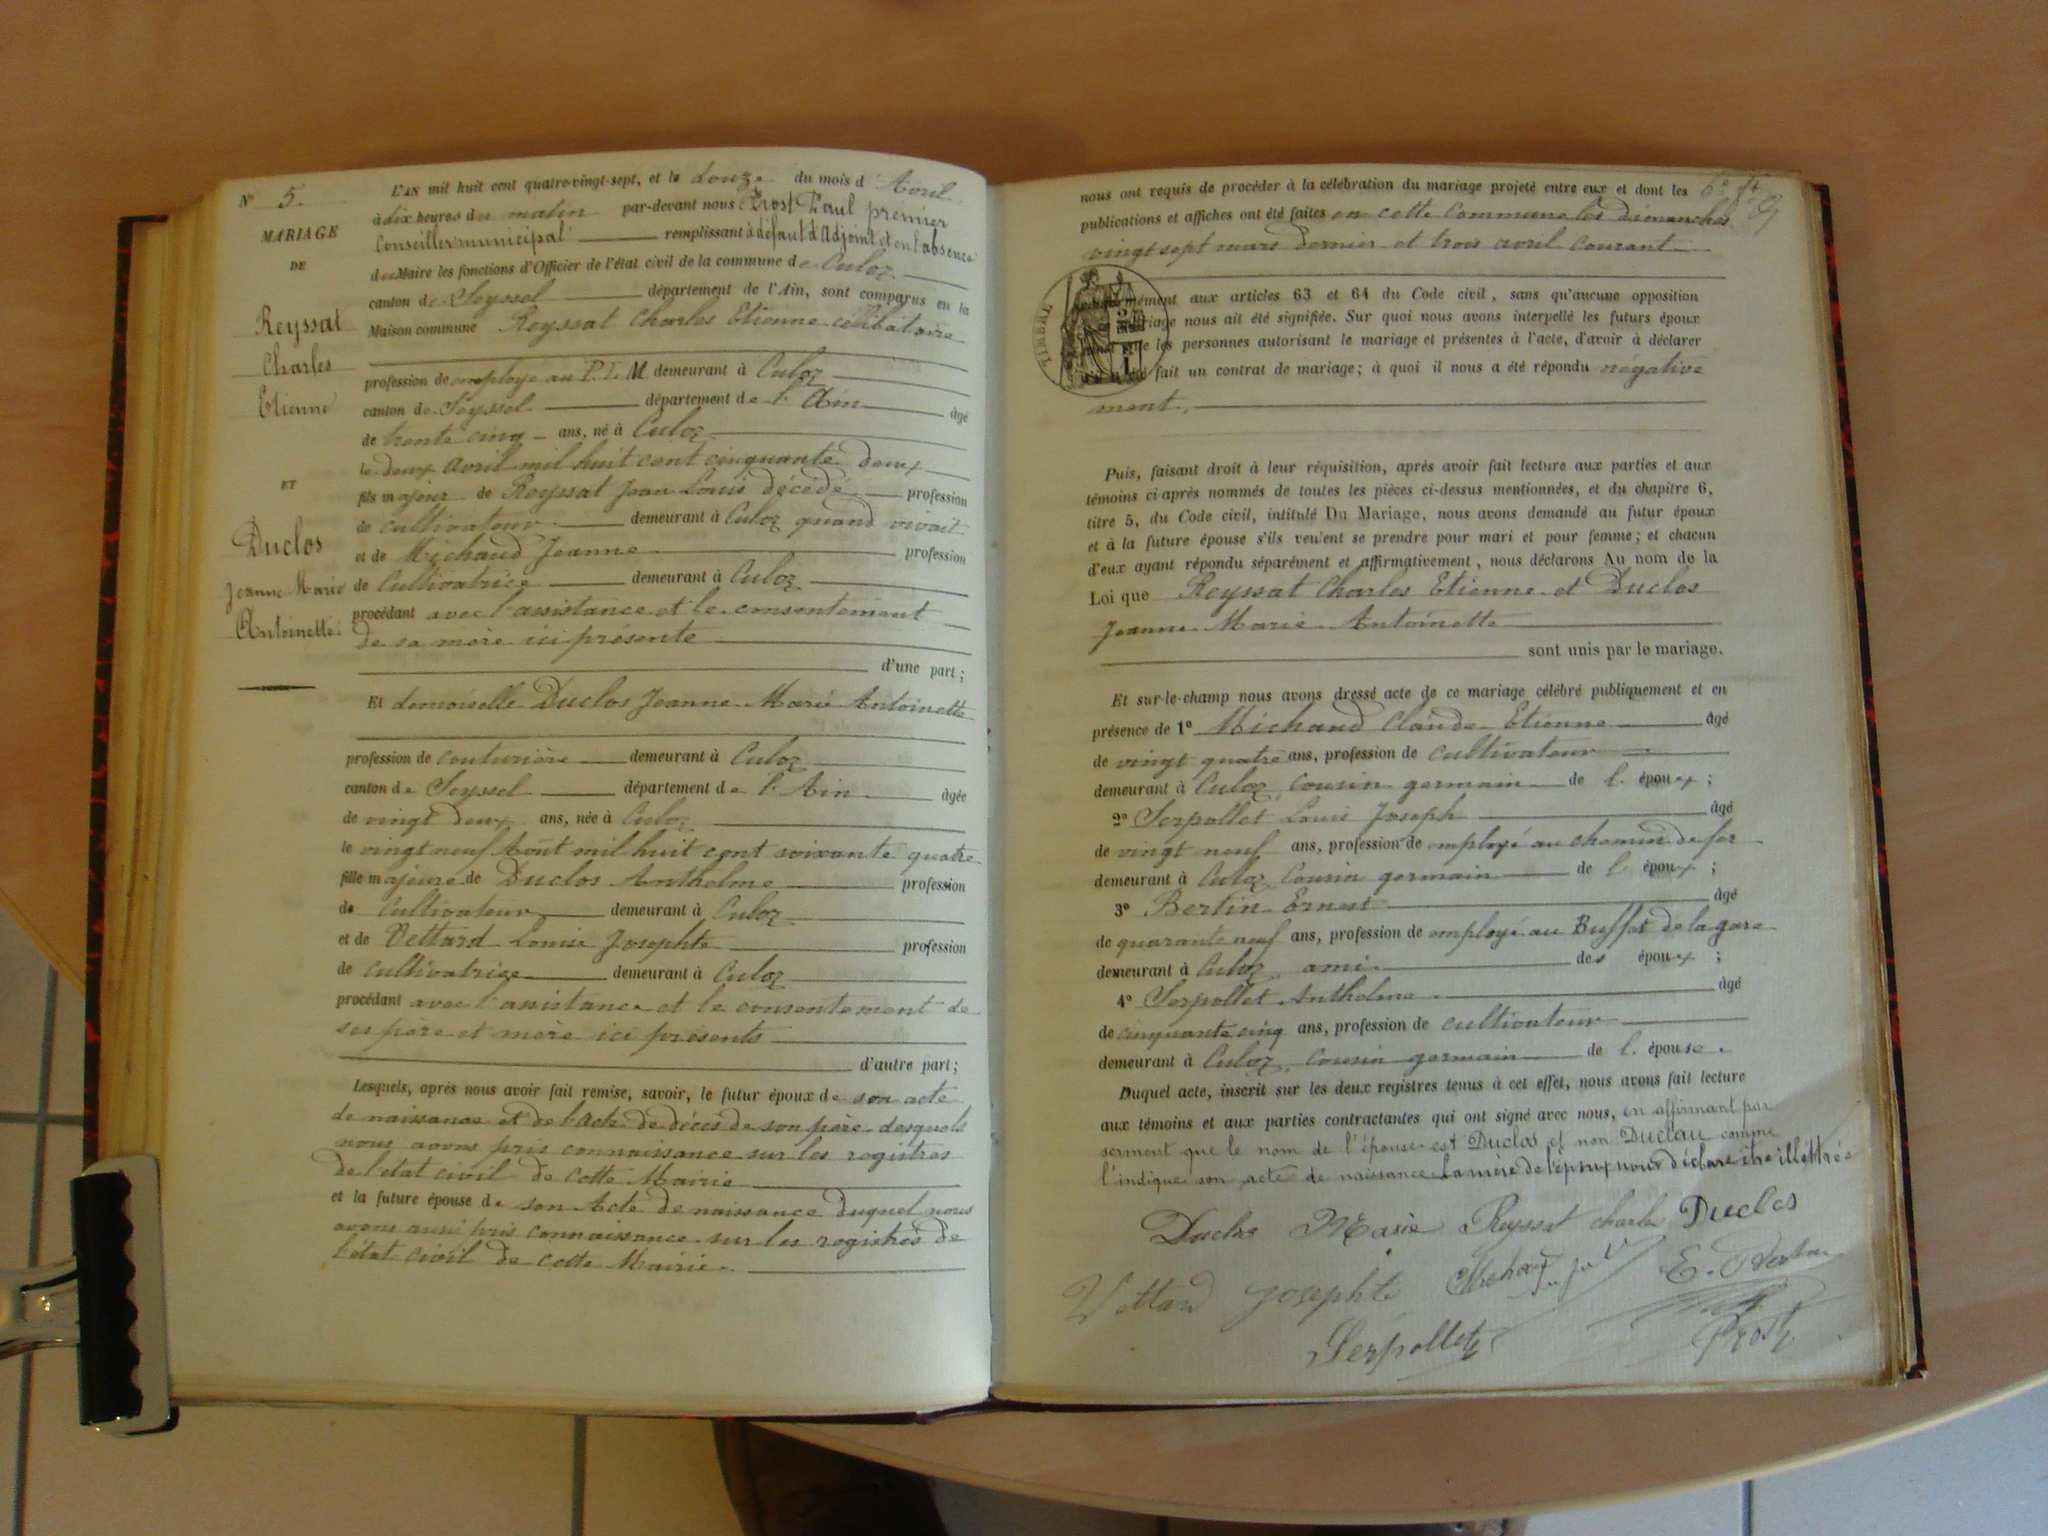 N° 5.
MARIAGE
DE
Reyssat
Charles
Etienne
ET
Duclos
Jeanne Marie
Antoinette.
L'AN mil huit cent quatre-vingt-sept, et le douze du mois d'Avril
à dix heures du matin par-devant nous Prost Paul premier
Conseiller municipal remplissant à défaut d'Adjoint et en l'absence
du Maire les fonctions d'Officier de l'état civil de la commune de Culoz
canton de Seyssel département de l'Ain, sont comparus en la
Maison commune Reyssat Charles Etienne célibataire
profession de employé au P. L. M demeurant à Culoz
canton de Seyssel département de l'Ain âgé
de trente cinq ans, né à Culoz
le deux avril mil huit cent cinquante deux
fils majeur de Reyssat Jean Louis décédé profession
de cultivateur demeurant à Culoz quand vivait
et de Michaud Jeanne profession
de Cultivatrice demeurant à Culoz
procédant avec l'assistance et le consentement
de sa mère ici présente
d'une part ;
Et demoiselle Duclos Jeanne Marie Antoinette
profession de couturière demeurant à Culoz
canton de Seyssel département de l'Ain âgée
de vingt deux ans, née à Culoz
le vingt neuf Août mil huit cent soixante quatre
fille majeure de Duclos Anthelme profession
de Cultivateur demeurant à Culoz
et de Vettard Louise Josephte profession
de cultivatrice demeurant à Culoz
procédant avec l'assistance et le consentement de
ses père et mère ici présents
d'autre part ;
Lesquels, après nous avoir fait remise, savoir, le futur époux de son acte
de naissance et de l'acte de décès de son père desquels
nous avons pris connaissance sur les registres
de l'état civil de cette Mairie
et la future épouse de son Acte de naissance duquel nous
avons aussi pris connaissance sur les registres de
l'état civil de cette Mairie.
nous ont requis de procéder à la célébration du mariage projeté entre eux et dont les
publications et affiches ont été faites en cette Commune les dimanches
vingt sept mars dernier et trois avril courant
TIMBRE
aux articles 63 et 64 du Code civil, sans qu'aucune opposition
mariage nous ait été signifiée. Sur quoi nous avons interpellé les futurs époux
que les personnes autorisant le mariage et présentes à l'acte, d'avoir à déclarer
fait un contrat de mariage ; à quoi il nous a été répondu négative
ment.
Puis, faisant droit à leur réquisition, après avoir fait lecture aux parties et aux
témoins ci-après nommés de toutes les pièces ci-dessus mentionnées, et du chapitre 6,
titre 5, du Code civil, intitulé Du Mariage, nous avons demandé au futur époux
et à la future épouse s'ils veulent se prendre pour mari et pour femme ; et chacun
d'eux ayant répondu séparément et affirmativement, nous déclarons Au nom de la
Loi que Reyssat Charles Etienne et Duclos
Jeanne Marie Antoinette
sont unis par le mariage.
Et sur-le-champ nous avons dressé acte de ce mariage célébré publiquement et en
présence de 1° Michaud Claude Etienne âgé
de vingt quatre ans, profession de cultivateur
demeurant à Culoz cousin germain de l'époux ;
2° Serpollet Louis Joseph âgé
de vingt neuf ans, profession de employé au chemin de fer
demeurant à Culoz Cousin germain de l'époux ;
3° Bertin Ernest âgé
de quarante neuf ans, profession de employé au Buffet de la gare
demeurant à Culoz, ami des époux ;
4° Serpollet Anthelme âgé
de cinquante cinq ans, profession de cultivateur
demeurant à Culoz, cousin germain de l'épouse.
Duquel acte, inscrit sur les deux registres tenus à cet effet, nous avons fait lecture
aux témoins et aux parties contractantes qui ont signé avec nous, en affirmant par
serment que le nom de l'épouse est Duclos et non Duclau comme
l'indique son acte de naissance La mère de l'époux nous déclare être illéttrée
Duclos Marie Reyssat Charles Duclos
Vettard Josephte
Serpollet Prost